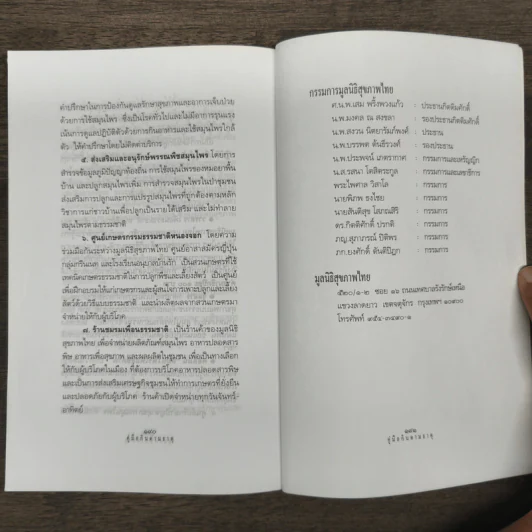 คำปรึกษาในการป้องกันดูแลรักษาสุขภาพและอาการเจ็บป่วย
ด้วยการใช้สมุนไพร ซึ่งเป็นโรคทั่วไปและไม่มีอาการรุนแรง
เน้นการดูแลปฏิบัติตัวด้วยการกินอาหารและใช้สมุนไพรใกล้
ตัว ให้คำปรึกษาโดยไม่คิดค่าบริการ
๕. ส่งเสริมและอนุรักษ์พรรณพืชสมุนไพร โดยการ
สำรวจข้อมูลภูมิปัญญาท้องถิ่น การใช้สมุนไพรของหมอยาพื้น
บ้าน และปลูกสมุนไพรเพิ่ม การสำรวจสมุนไพรในป่าชุมชน
ส่งเสริมการปลูกและการแปรรูปสมุนไพรที่ถูกต้องตามหลัก
วิชาการแก่ชาวบ้านเพื่อปลูกเป็นรายได้เสริม และไม่ทำลาย
สมุนไพรตามธรรมชาติ
๖. ศูนย์เกษตรกรรมธรรมชาติหนองจอก โดยความ
ร่วมมือกันระหว่างมูลนิธิสุขภาพไทย ศูนย์อาสาสมัครญี่ปุ่น
กลุ่มกรีนเนท และโรงเรียนอนุบาลบ้านรัก เป็นสวนเกษตรที่ใช้
เทคนิคเกษตรธรรมชาติในการปลูกพืชและเลี้ยงสัตว์ เป็นศูนย์
เพื่อฝึกอบรมให้แก่เกษตรกรและผู้สนใจในการเพาะปลูกและเลี้ยง
สัตว์ด้วยวิธีแบบธรรมชาติ และนำผลิตผลจากสวนเกษตรมา
จำหน่ายให้กับผู้บริโภค
๗. ร้านชมรมเพื่อนธรรมชาติ เป็นร้านค้าของมูลนิธิ
สุขภาพไทย เพื่อจำหน่ายผลิตภัณฑ์สมุนไพร อาหารปลอดสาร
พิษ อาหารเพื่อสุขภาพ และผลผลิตในชุมชน เพื่อเป็นทางเลือก
ให้กับผู้บริโภคในเมือง ที่ต้องการบริโภคอาหารปลอดสารพิษ
และเป็นการส่งเสริมเศรษฐกิจชุมชนให้ทำการเกษตรที่ยั่งยืน
และปลอดภัยกับผู้บริโภค ร้านค้าเปิดจำหน่ายทุกวันจันทร์-
อาทิตย์
๑๘๐
คู่มือกินตามธาตุ
กรรมการมูลนิธิสุขภาพไทย
ศ.น.พ.เสม พริ้งพวงแก้ว : ประธานกิตติมศักดิ์
น.พ.มงคล ณ สงขลา : รองประธานกิตติมศักดิ์
น.พ.สงวน นิตยารัมภ์พงศ์ : ประธาน
น.พ.บรรพต ต้นธีรวงศ์ : รองประธาน
น.พ.ประพจน์ เภตรากาศ : กรรมการและเหรัญญิก
น.ส.รสนา โตสิตระกูล : กรรมการและเลขาธิการ
พระไพศาล วิสาโล : กรรมการ
นายพิภพ ธงไชย : กรรมการ
นายสันติสุข โสภณสิริ : กรรมการ
ดร.กิตติศักดิ์ ปรกติ : กรรมการ
ภญ.สุภาภรณ์ ปิติพร : กรรมการ
ภก.ยงศักดิ์ ตันติปิฎก : กรรมการ
มูลนิธิสุขภาพไทย
๕๒๐/๑-๒ ซอย ๑๖ ถนนเทศบาลรังรักษ์เหนือ
แขวงลาดยาว เขตจตุจักร กรุงเทพฯ ๑๐๙๐๐
โทรศัพท์
๑๘๑
คู่มือกินตามธาตุ